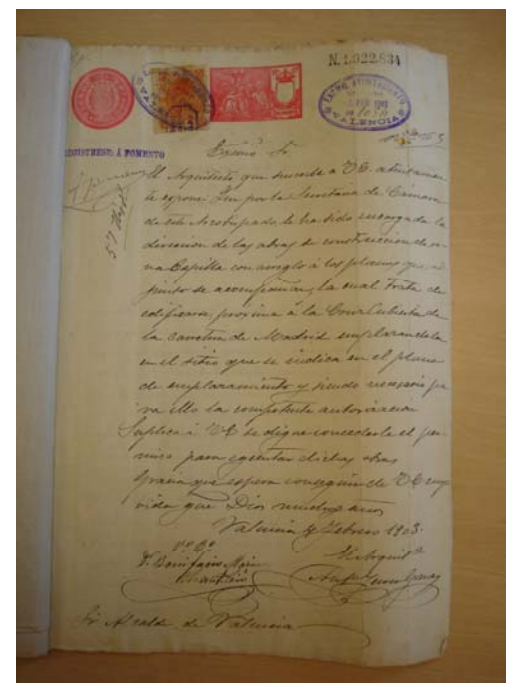 N. 1.022.834
EXCMO. AYUNTAMIENTO
VALENCIA
REGISTRESE: Á FOMENTO
Excmo Sr
El Arquitecto que suscribe a V.E. atentamen
te expone: Que por la Secretaria de Cámara
de este Arzobispado, le ha sido encargada la
direccion de las obras de construccion de u
na Capilla con arreglo á los planos que, ad
junto se acompañan, la cual trata de
edificarse, proxima á la Cruz Cubierta de
la carretera de Madrid emplazandola
en el sitio que se indica en el plano
de emplazamiento y siendo necesario pa
ra ello la competente autorizacion
Suplica á V.E. se digne concederle el per
miso para ejecutar dichas obras
Gracia que espera conseguir de V.E. cuya
vida gue Dios muchos años
Valencia y Febrero 1903.
Vº Bº
El Arquitto
D. Bonifacio Marin
Sr Alcalde de Valencia